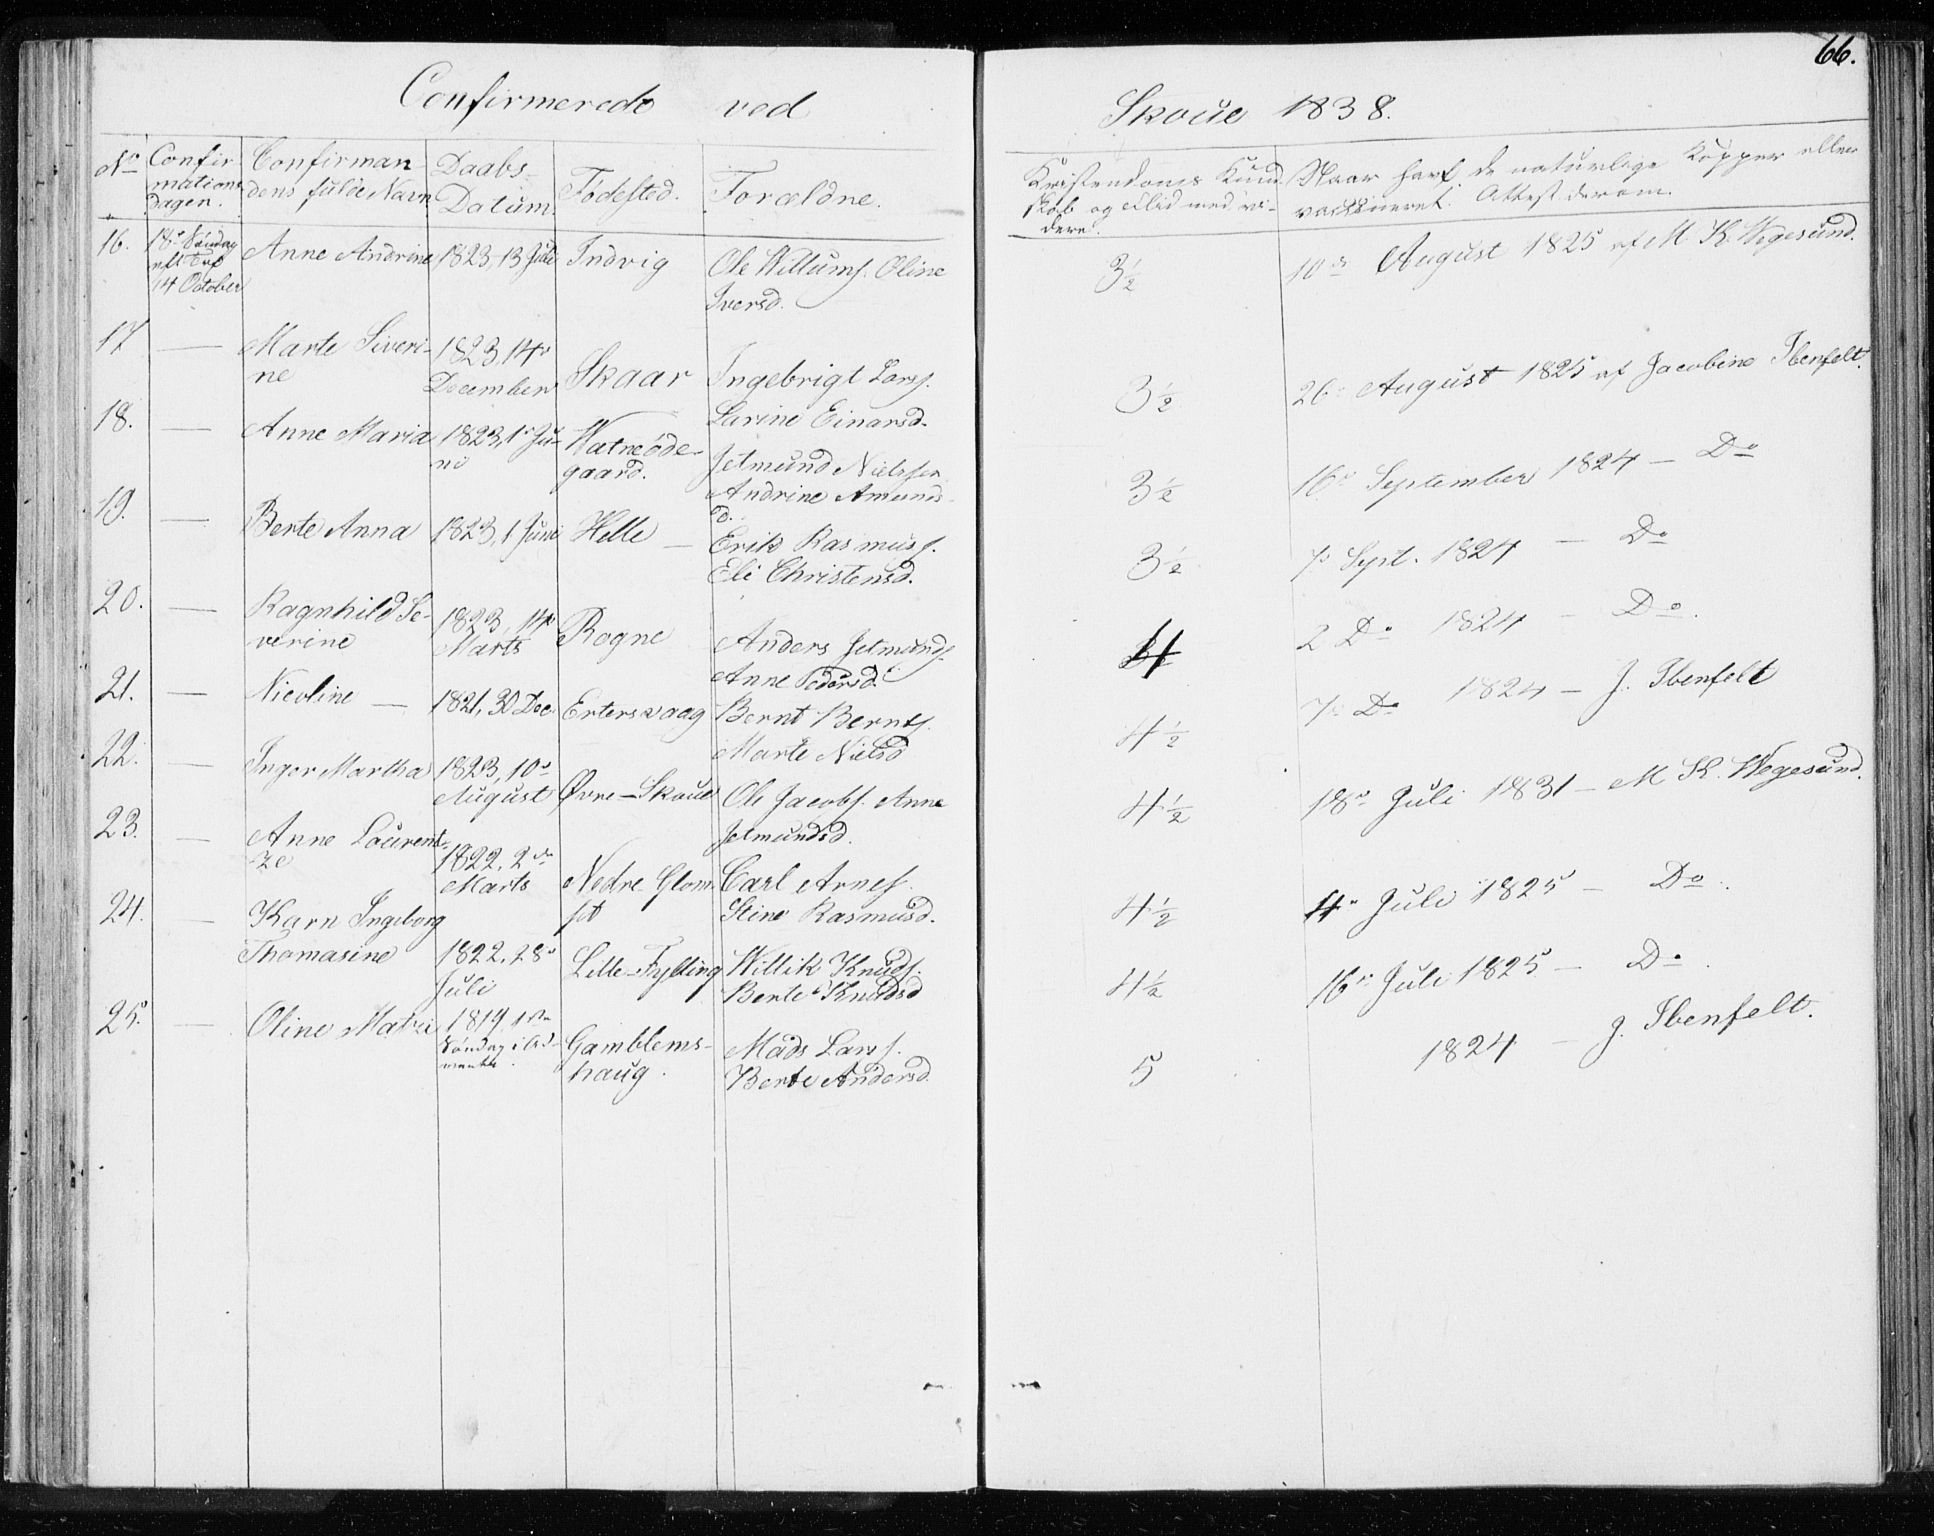 66.
Confirmerede ved Skoue 1838.
No Confirmations dagen. Confirmandens fulde Navn Daabs-Datum. Fødested. Forældre. Kristendoms Kundskab og Flid med videre. Naar havt de naturlige Kopper eller vaccineret. Attest derom.
16. 18de Søndag eft Trf 14 October Anne Andrine 1823, 13 Juli Indvig Ole Willums. Oline Iversd. 3½ 10de August 1825 af M K. Wegesund.
17 — Marte Siverine 1823, 14de December Skaar Ingebrigt Lars. Larine Einarsd. 3½ 26de August 1825 af Jacobine Ibenfelt.
18. — Anne Maria 1823, 1de Juni Watneødegaard. Jetmund Nielsen Andrine Amundsd. 3½ 16de September 1824 — Do
19. — Berte Anna 1823, 1 Juni Helle — Erik Rasmuss. Eli Christensd. 3½ 7de Sept. 1824 — Do
20. — Ragnhild Severine 1823, 14de Marts Rogne Anders Jetmunds. Anne Pedersd. 4 2 Do 1824 — Do.
21. — Nicoline — 1821, 30 Dec. Ertersvaag Bernt Bernts. Marte Nielsd 4½ 7de Do 1824 — J. Ibenfelt
22. — Inger Martha 1823, 10de August Øvre-Skoue Ole Jacobs. Anne Jetmundsd. 4½ 18de Juli 1831 — M K. Wegesund.
23. — Anne Laurentze 1822, 2de Marts Nedre Glomset Carl Arnes. Stine Rasmusd. 4½ 4de Juli 1825 — Do.
24. — Karn Ingeborg Thomasine 1822, 28de Juli Lille-Fylling Willik Knuds. Berte Knudsd 4½ 16de Juli 1825 — Do.
25. — Oline Matzi 1819, 1ste Søndag i Advente. Gamblemshaug. Mads Lars. Berte Andersd. 5 1824 — J. Ibenfelt.